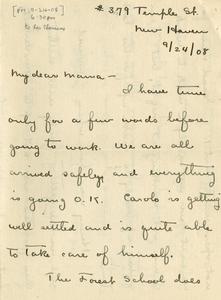 # 379 Temple St.
New Haven
9/24/08
My dear Mama —
I have time
only for a few words before
going to work. We are all
arrived safely and everything
is going O.K. Carolo is getting
well settled and is quite able
to take care of himself.
The Forest School does